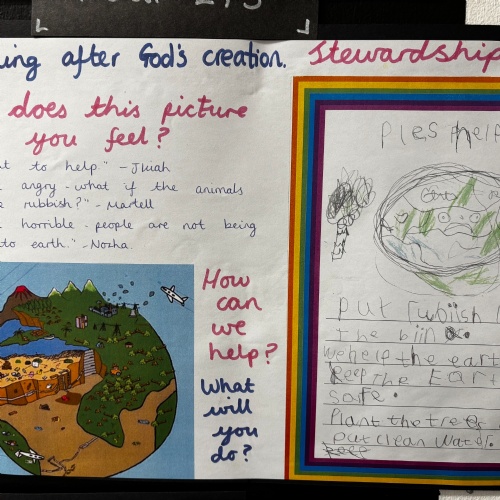 ing after God's creation. Stewardship
does this picture
you feel?
to help." - J
angry - what if the animals
rubbish?" - Martell
horrible - people are not being
to earth." - Nozha
How
can
we
help?
What
will
you
do?
Ples help
put rubiish
the biin
we help the eart
keep the Eart
safe.
Plant the trees
put clean Water.